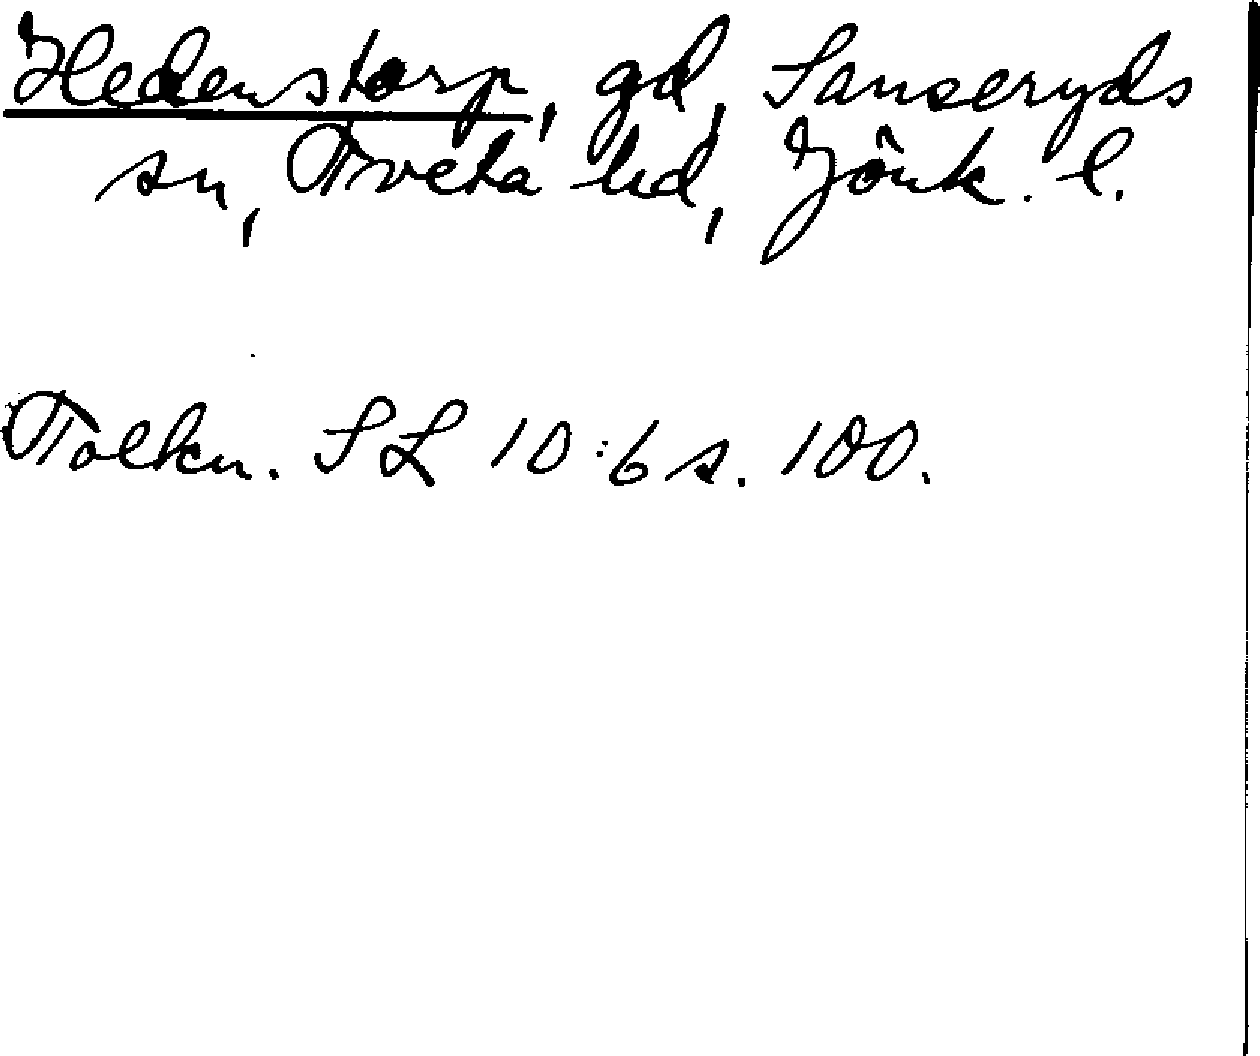 Hedenstorp, gd, Sanseryds
sn, Tveta hd, Jönk. l.
Tolkn. SL 10:6 s. 100.